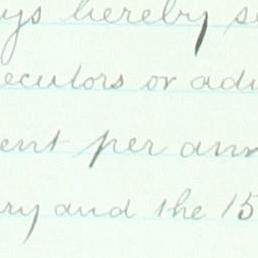 ys hereby se
ecutors or adm
ent per ann
ry and the 15